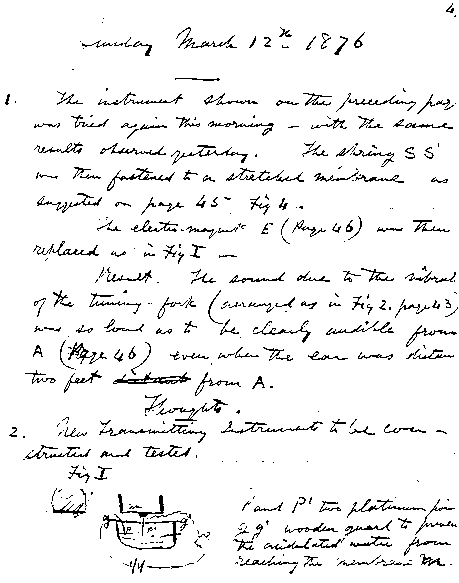 Sunday March 12th 1876
1. The instrument shown on the preceding pag
was tried again this morning — with the same
results observed yesterday. The spring S S'
was then fastened to a stretched membrane as
suggested on page 45 Fig 4.
The electro-magnet E (Page 46) was then
replaced as in Fig I —
Result. The sound due to the vibrat
of the tuning-fork (arranged as in Fig 2. page 43)
was so loud as to be clearly audible from
A (Page 46) even when the ear was distan
two feet from A.
Thoughts.
2. New Transmitting Instruments to be con-
structed and tested.
Fig I
P and P' two platinum pin
g g' wooden guard to preven
the acidulated water from
reaching the membrane m.
m
g g'
P P'